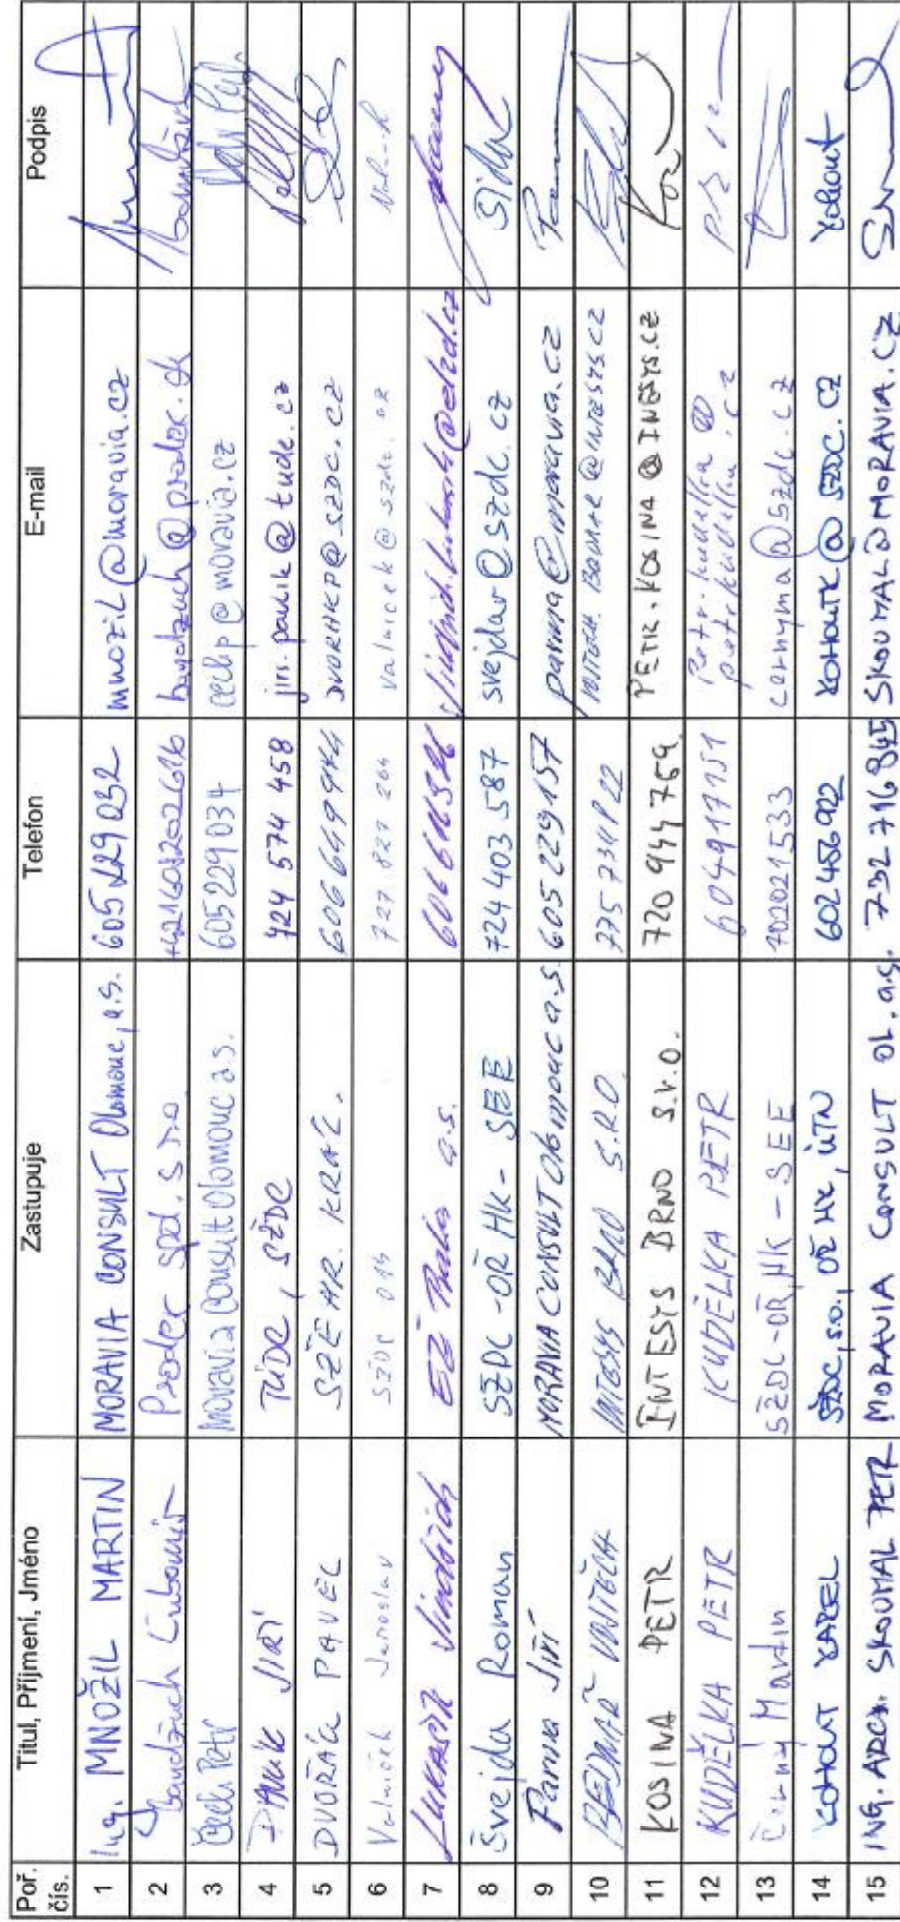 Poř. čís. Titul, Příjmení, Jméno Zastupuje Telefon E-mail Podpis
1 Ing. MNOŽIL MARTIN MORAVIA CONSULT Olomouc, a.s. 605 229 032 mnozil@moravia.cz
2 Ľubomír Prodex spol. s r.o. +421
3 Čech Petr Moravia Consult Olomouc a.s. 605229034 cechp@moravia.cz
4 JIŘÍ TÚDC, SŽDC 724 574 458 jiri.pavlik@tudc.cz
5 DVOŘÁK PAVEL SŽDC HR. KRÁL. DVORAKP@SZDC.CZ
6 Valníček Jaroslav SŽDC 727 821 264 valnicek@szdc.cz
7 Lukašík Jindřich EŽ Praha a.s.
8 Švejda Roman SŽDC - OŘ HK - SEE 724 403 587 svejdar@szdc.cz
9 Parma Jiří MORAVIA CONSULT Olomouc a.s. 605 229 157 parma@moravia.cz
10 BEDNÁŘ VOJTĚCH INTESYS BRNO S.R.O. 775 734 122
11 KOSINA PETR INTESYS BRNO s.r.o. 720 944 769 PETR.KOSINA@INTESYS.CZ
12 KUDĚLKA PETR KUDĚLKA PETR 604917151 petr.kudelka@petrkudelka.cz
13 Černý Martin SŽDC-OŘ HK - SEE 702021533 cernyma@szdc.cz
14 KOHOUT KAREL SŽDC, s.o., OŘ HK, ÚTN 602 456 922 KOHOUTK@SZDC.CZ Kohout
15 ING. ARCH. SKOUMAL PETR MORAVIA CONSULT OL. a.s. 732 716 845 SKOUMAL@MORAVIA.CZ